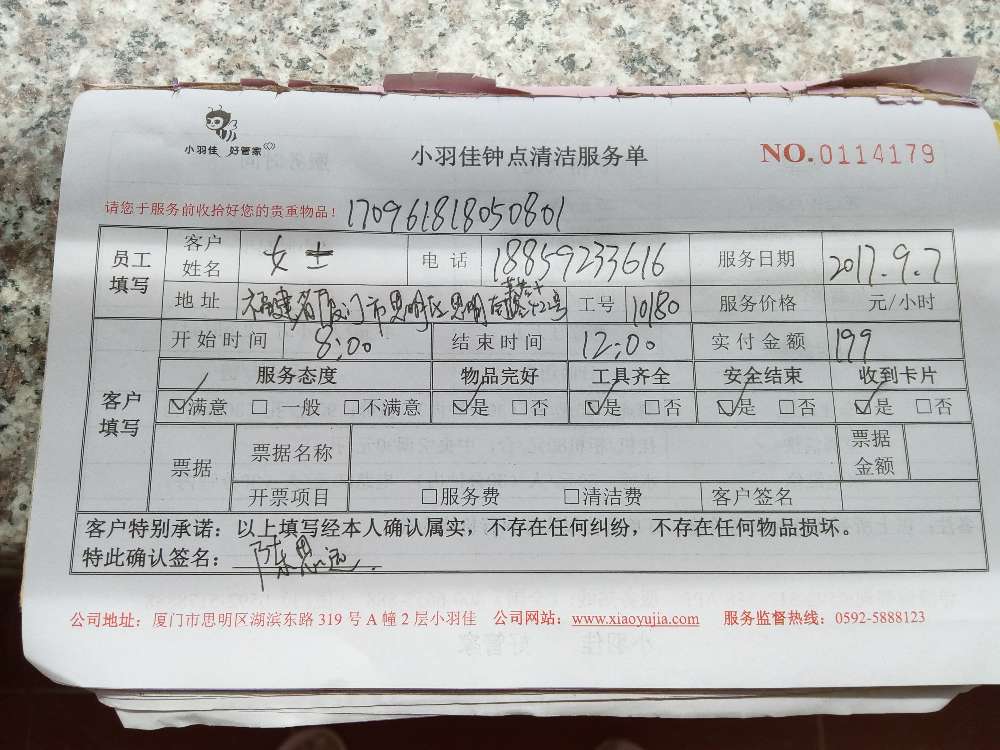 小羽佳 好管家
小羽佳钟点清洁服务单
NO.0114179
请您于服务前收拾好您的贵重物品！170961818050801
员工填写 客户姓名 女士 电话 18859233616 服务日期 2017.9.7
地址 福建省厦门市思明区思明南路422号 工号 10180 服务价格 元/小时
客户填写 开始时间 8:00 结束时间 12:00 实付金额 199
服务态度 物品完好 工具齐全 安全结束 收到卡片
☑满意 □一般 □不满意 ☑是 □否 ☑是 □否 ☑是 □否 ☑是 □否
票据 票据名称 票据金额
开票项目 □服务费 □清洁费 客户签名
客户特别承诺：以上填写经本人确认属实，不存在任何纠纷，不存在任何物品损坏。
特此确认签名：陈思远
公司地址：厦门市思明区湖滨东路 319 号 A 幢 2 层小羽佳 公司网站：www.xiaoyujia.com 服务监督热线：0592-5888123